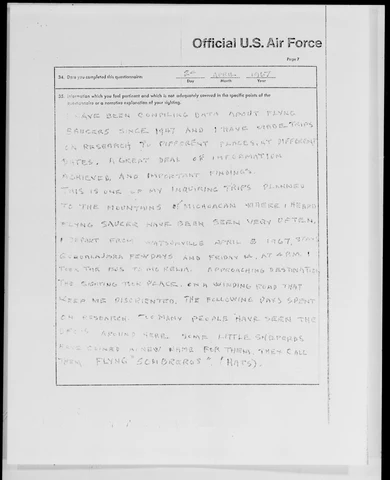 Official U.S. Air Force
Page 7
34. Date you completed this questionnaire:
Day Month Year
35. Information which you feel pertinent and which is not adequately covered in the specific points of the
questionnaire or a narrative explanation of your sighting.
I HAVE BEEN COMPILING DATA ABOUT FLYING
SAUCERS SINCE 1947 AND I HAVE MADE TRIPS
ON RESEARCH TO DIFFERENT PLACES AT DIFFERENT
DATES. A GREAT DEAL OF INFORMATION
ACHIEVED AND IMPORTANT FINDINGS.
THIS IS ONE OF MY INQUIRING TRIPS PLANNED
TO THE MOUNTAINS OF MICHOACAN WHERE I HEARD
FLYING SAUCERS HAVE BEEN SEEN VERY OFTEN.
I DEPART FROM WATSONVILLE APRIL 8 1967,
GUADALAJARA FEW DAYS AND FRIDAY 14, AT 4 P.M. I
TOOK THE BUS TO MORELIA. APPROACHING DESTINATION
THE SIGHTING TOOK PLACE. ON A WINDING ROAD THAT
KEEP ME DISORIENTED. THE FOLLOWING DAYS SPENT
ON RESEARCH. TO MANY PEOPLE HAVE SEEN THE
AROUND HERE SOME LITTLE SHEPERDS
A NEW NAME FOR THEM, THEY CALL
THEM FLYING "SOMBREROS" (HATS).